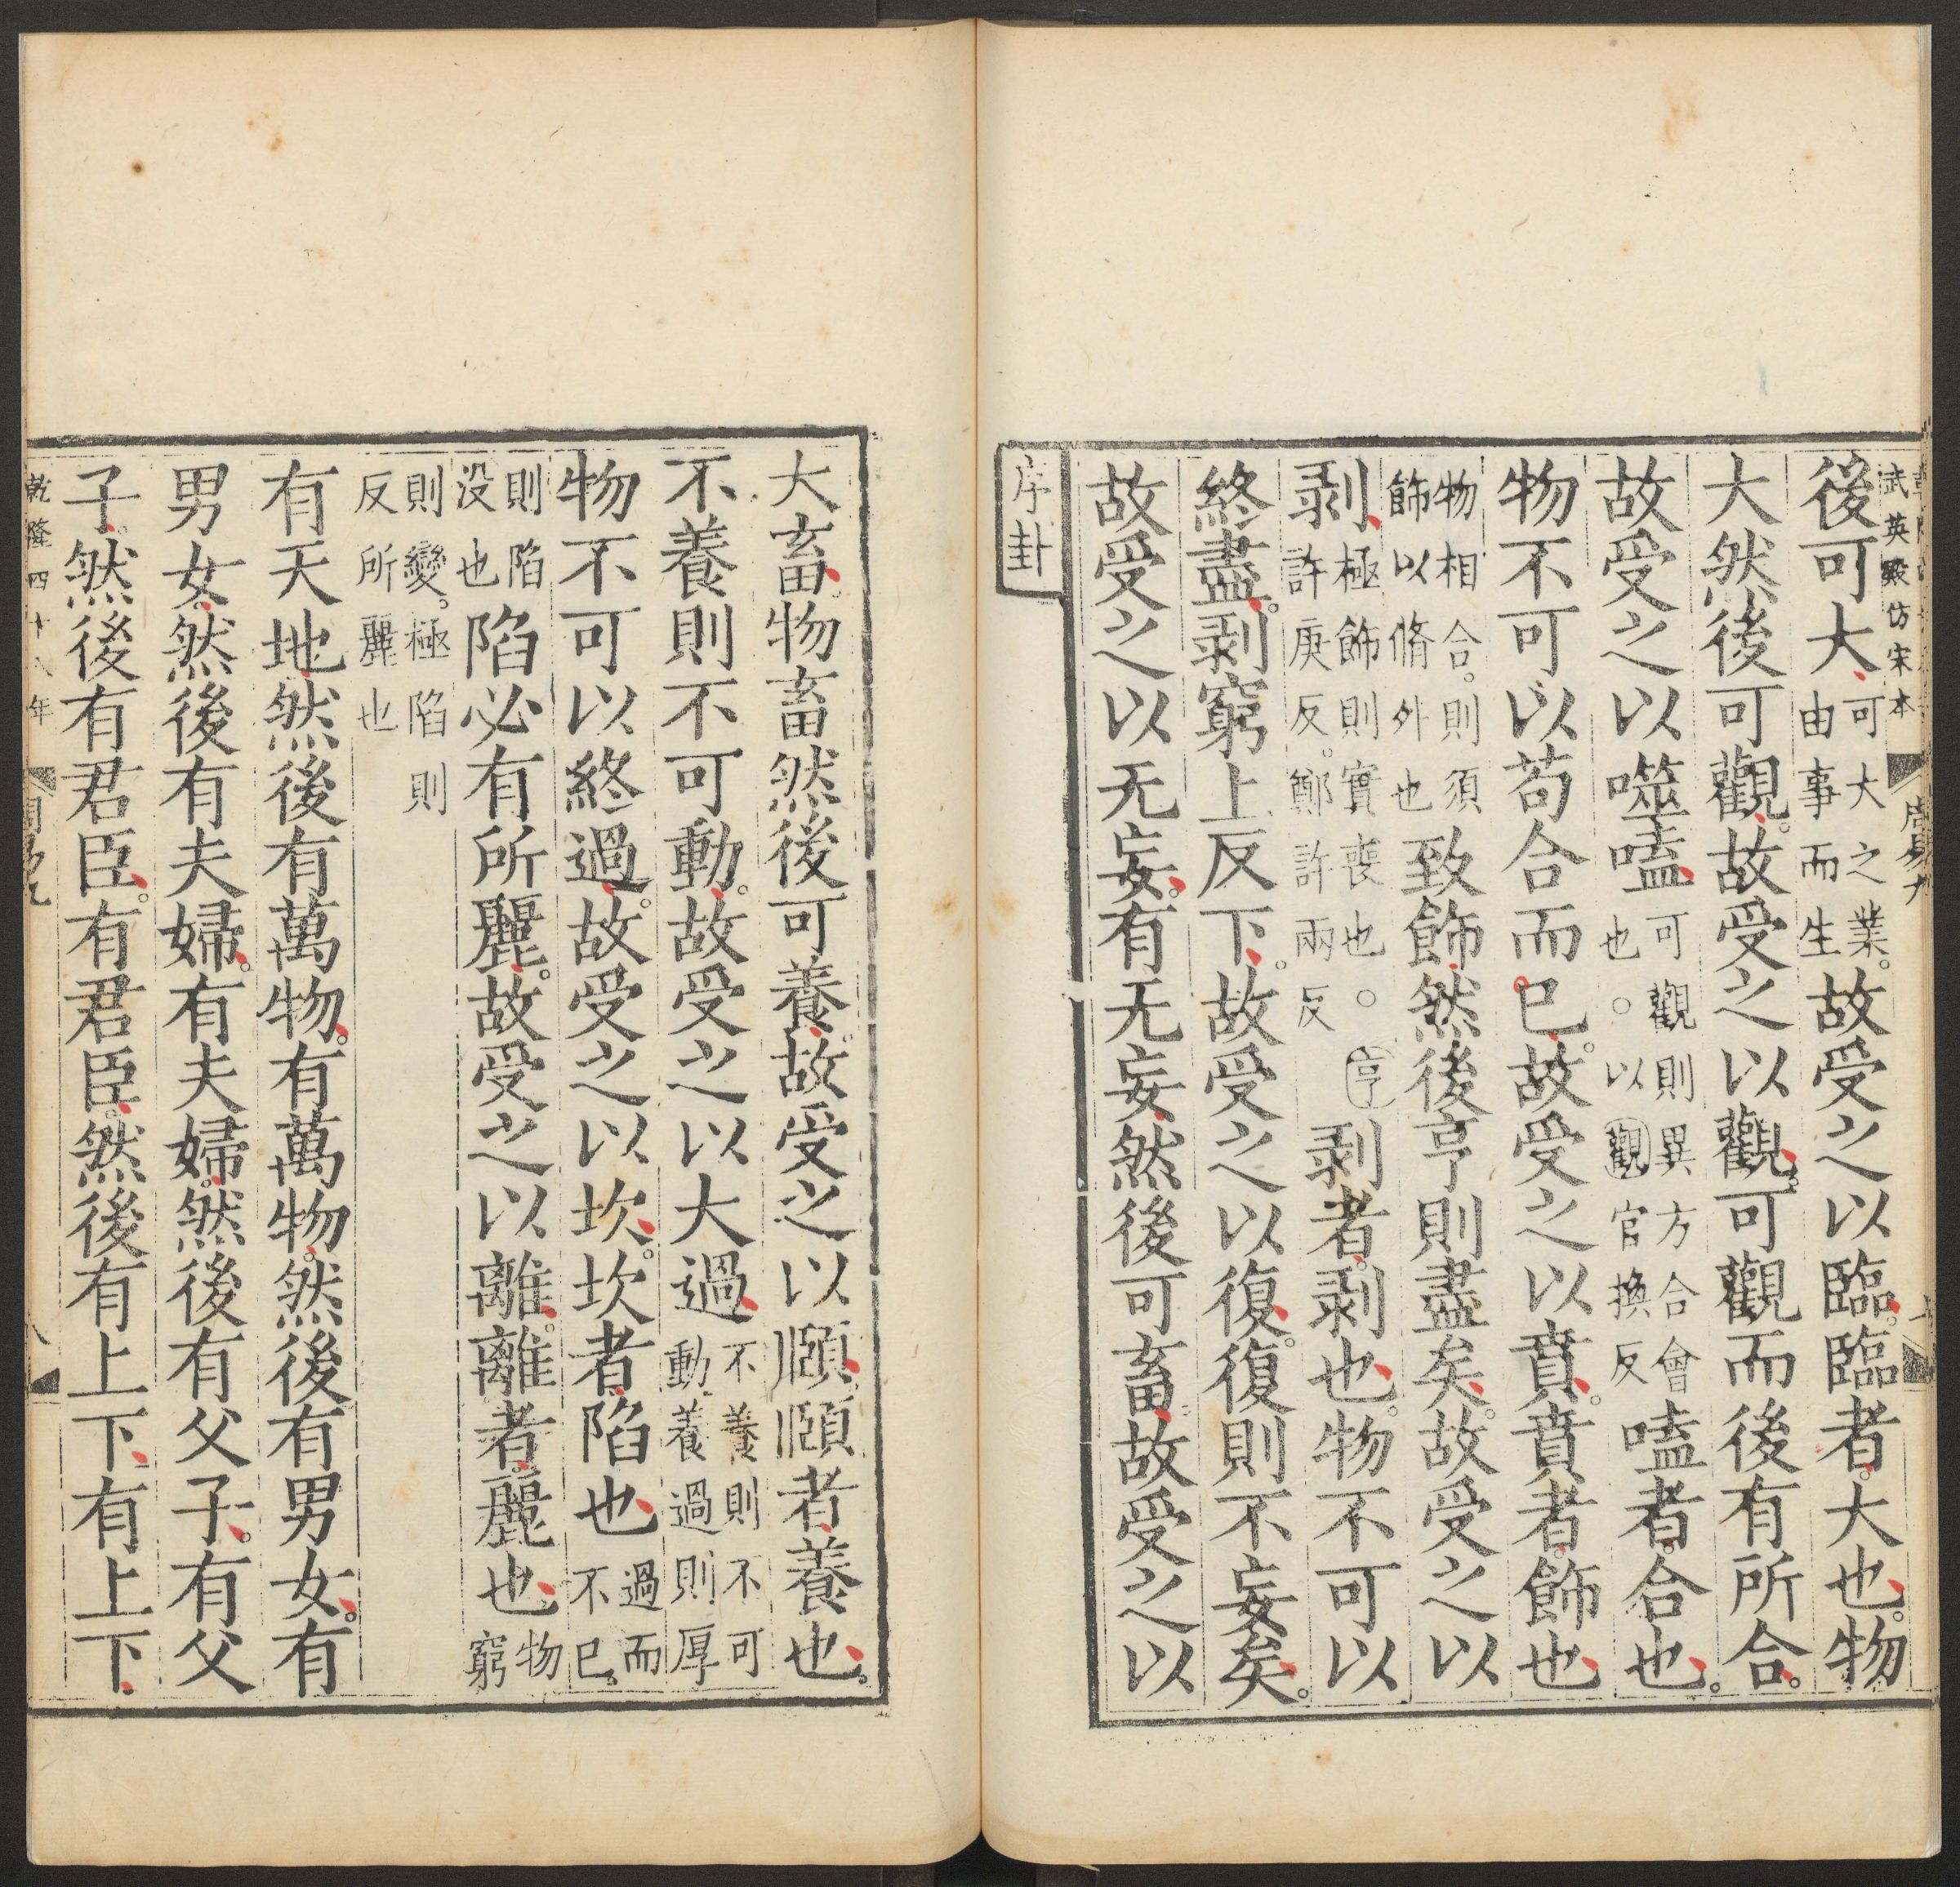 武英殿仿宋本
周易九
後可大可大之業由事而生故受之以臨臨者大也物
大然後可觀故受之以觀可觀而後有所合
故受之以噬嗑可觀則異方合會也。以觀官換反嗑者合也
物不可以苟合而已故受之以賁賁者飾也
物相合則須飾以脩外也致飾然後亨則盡矣故受之以
剥極飾則實喪也。亨許庚反鄭許兩反剥者剥也物不可以
終盡剥窮上反下故受之以復復則不妄矣
故受之以无妄有无妄然後可畜故受之以
序卦
大畜物畜然後可養故受之以頤頤者養也
不養則不可動故受之以大過不養則不可動養過則厚
物不可以終過故受之以坎坎者陷也過而不已
則陷没也陷必有所麗故受之以離離者麗也物窮
則變極陷則反所麗也
有天地然後有萬物有萬物然後有男女有
男女然後有夫婦有夫婦然後有父子有父
子然後有君臣有君臣然後有上下有上下
乾隆四十八年
周易九
八